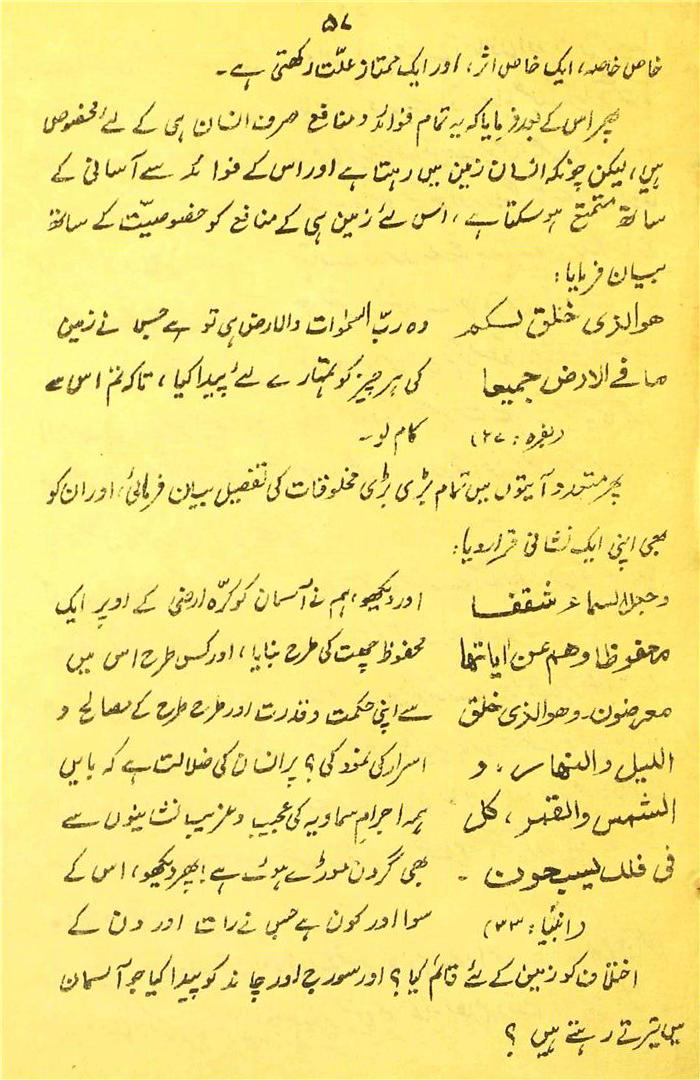 ۵۷
خاص خاصہ، ایک خاص اثر، اور ایک ممتاز علّت رکھتی ہے۔
پھر اس کے بعد فرمایا کہ یہ تمام فوائد و منافع صرف انسان ہی کے لئے مخصوص
ہیں، لیکن چونکہ انسان زمین میں رہتا ہے اور اس کے فوائد سے آسانی کے
ساتھ متمتع ہو سکتا ہے، اس لئے زمین ہی کے منافع کو خصوصیّت کے ساتھ
بیان فرمایا:
ھوالذی خلق لکم وہ ربّ السمٰوات والارض ہی تو ہے جس نے زمین
ما فی الارض جمیعا کی ہر چیز کو تمہارے لئے پیدا کیا، تاکہ تم اس سے
(بقرہ: ۲۷) کام لو۔
پھر متعدد آیتوں میں تمام بڑی بڑی مخلوقات کی تفصیل بیان فرمائی، اور ان کو
بھی اپنی ایک نشانی قرار دیا:
وجعلنا السماء شقفا اور دیکھو، ہم نے آسمان کو کرّہ ارضی کے اوپر ایک
محفوظا وھم عن ایاتھا محفوظ چھت کی طرح بنایا، اور کس طرح اس میں
معرضون، وھوالذی خلق سے اپنی حکمت و قدرت اور طرح طرح کے مصالح و
اللیل والنھار، و اسرار کی نمود کی؟ پر انسان کی ضلالت ہے کہ بایں
الشمس والقمر، کل ہمہ اجرام سماویہ کی عجیب و غریب نشانیوں سے
فی فلک یسبحون۔ بھی گردن موڑے ہوئے ہے! پھر دیکھو، اس کے
(انبیا: ۳۳) سوا اور کون ہے جس نے رات اور دن کے
اختلاف کو زمین کے لئے قائم کیا؟ اور سورج اور چاند کو پیدا کیا جو آسمان
میں تیرتے رہتے ہیں؟